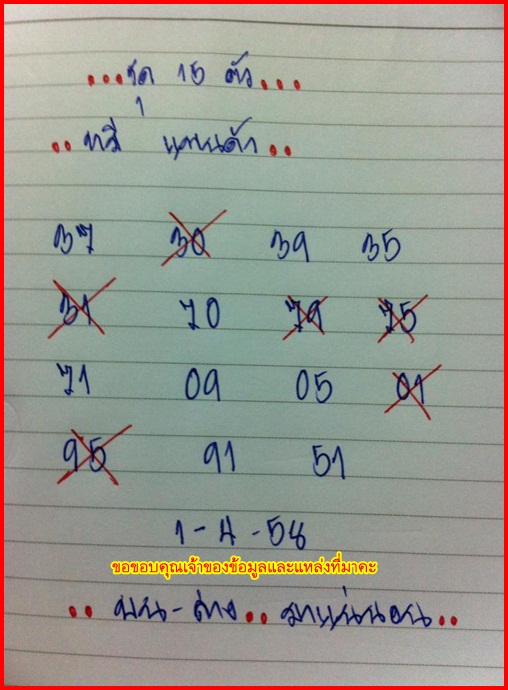 ...ชุด 15 ตัว...
..หมี แพนด้า..
37 30 39 35
31 70 79 75
71 09 05 01
95 91 51
1-4-58
ขอขอบคุณเจ้าของข้อมูลและแหล่งที่มาคะ
..บน-ล่าง..มาแน่นอน..